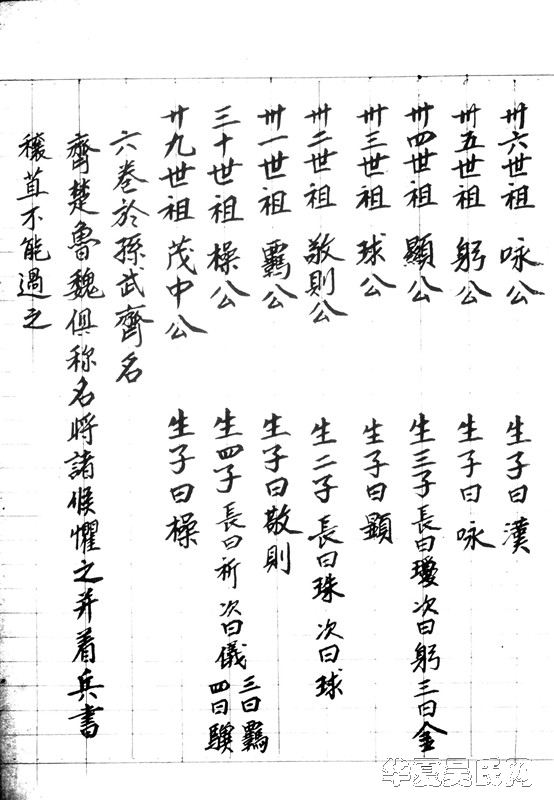 穰苴不能過之
齊楚魯魏俱称名將諸候懼之并着兵書
六卷於孫武齊名
廿九世祖 茂中公 生子曰操
三十世祖 操公 生四子 長曰祈 次曰儀 三曰覊 四曰驥
卅一世祖 覊公 生子曰敬則
卅二世祖 敬則公 生二子 長曰珠 次曰球
卅三世祖 球公 生子曰顯
卅四世祖 顯公 生三子長曰瓊次曰躬三曰金
卅五世祖 躬公 生子曰咏
卅六世祖 咏公 生子曰漢
华夏吴氏网